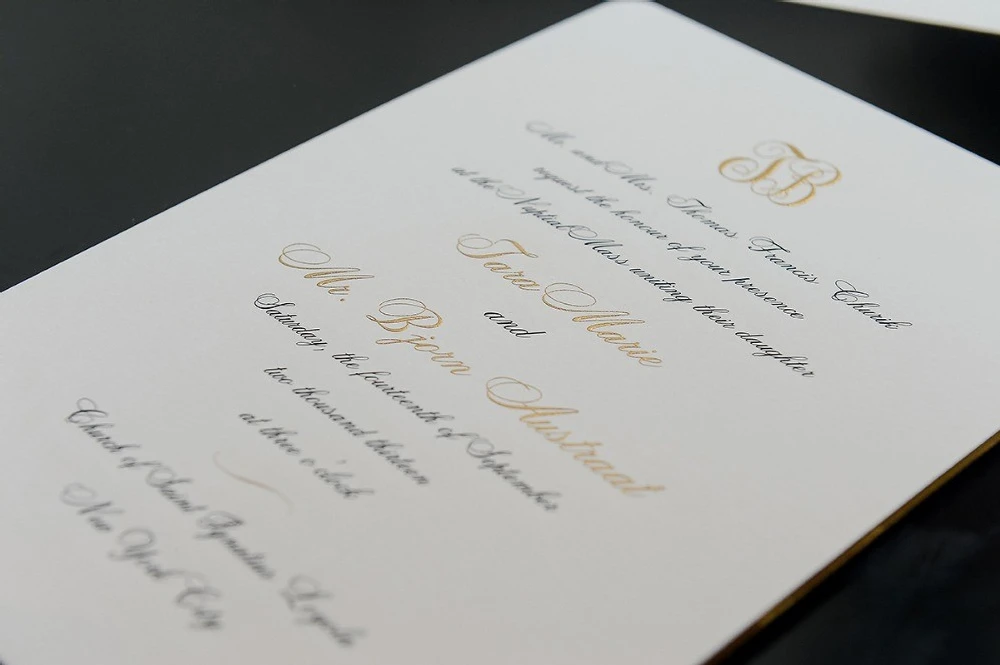 TB
Mr. and Mrs. Thomas Francis Chwik
request the honour of your presence
at the Nuptial Mass uniting their daughter
Tara Marie
and
Mr. Bjorn Austraat
Saturday, the fourteenth of September
two thousand thirteen
at three o'clock
Church of Saint Ignatius Loyola
New York City